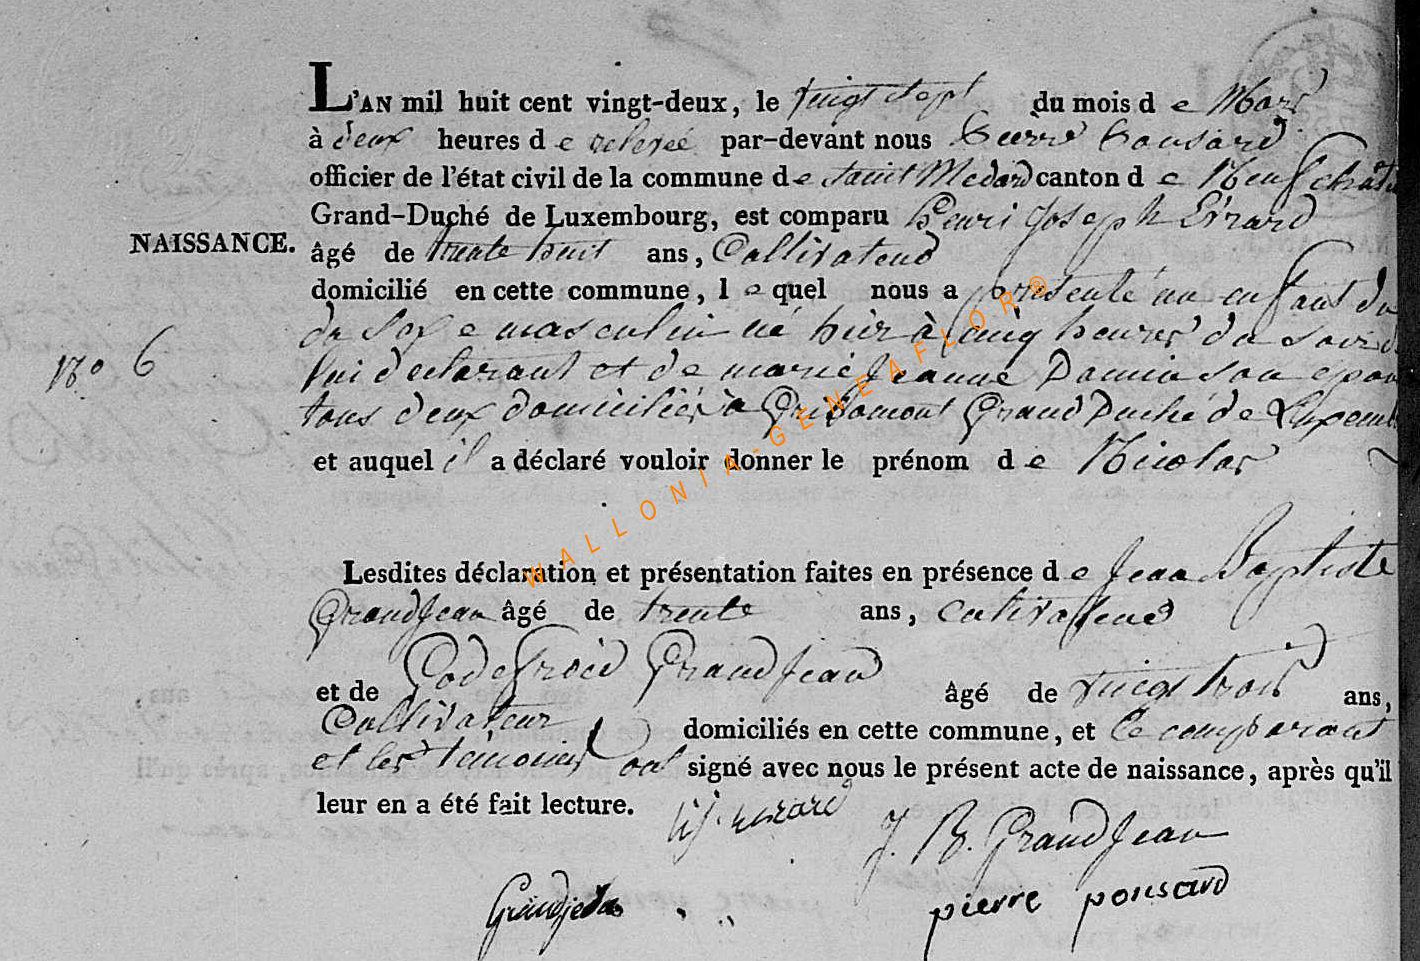 L'AN mil huit cent vingt-deux, le vingt sept du mois d e Mars
à deux heures d e relevée par-devant nous Pierre Ponsard
officier de l'état civil de la commune d e Saint Medard canton d e Neufchât
Grand-Duché de Luxembourg, est comparu henri Joseph
NAISSANCE.
âgé de trente huit ans, Cultivateur
domicilié en cette commune, l e quel nous a présenté un enfant du
du Sexe masculin né hier à cinq heures du soir d
N° 6
lui declarant et de marie Jeanne son epou
tous deux domiciliés a Gribomont Grand Duché de Luxemb
et auquel il a déclaré vouloir donner le prénom d e Nicolas
Lesdites déclaration et présentation faites en présence d e Jean Baptiste
GrandJean âgé de trente ans, cultivateur
et de Godefroid GrandJean âgé de vingt trois ans,
Cultivateur domiciliés en cette commune, et le comparant
et les temoins ont signé avec nous le présent acte de naissance, après qu'il
leur en a été fait lecture.
J. B. GrandJean
Grandjean
pierre ponsard
WALLONIA-GENEAFLOR®